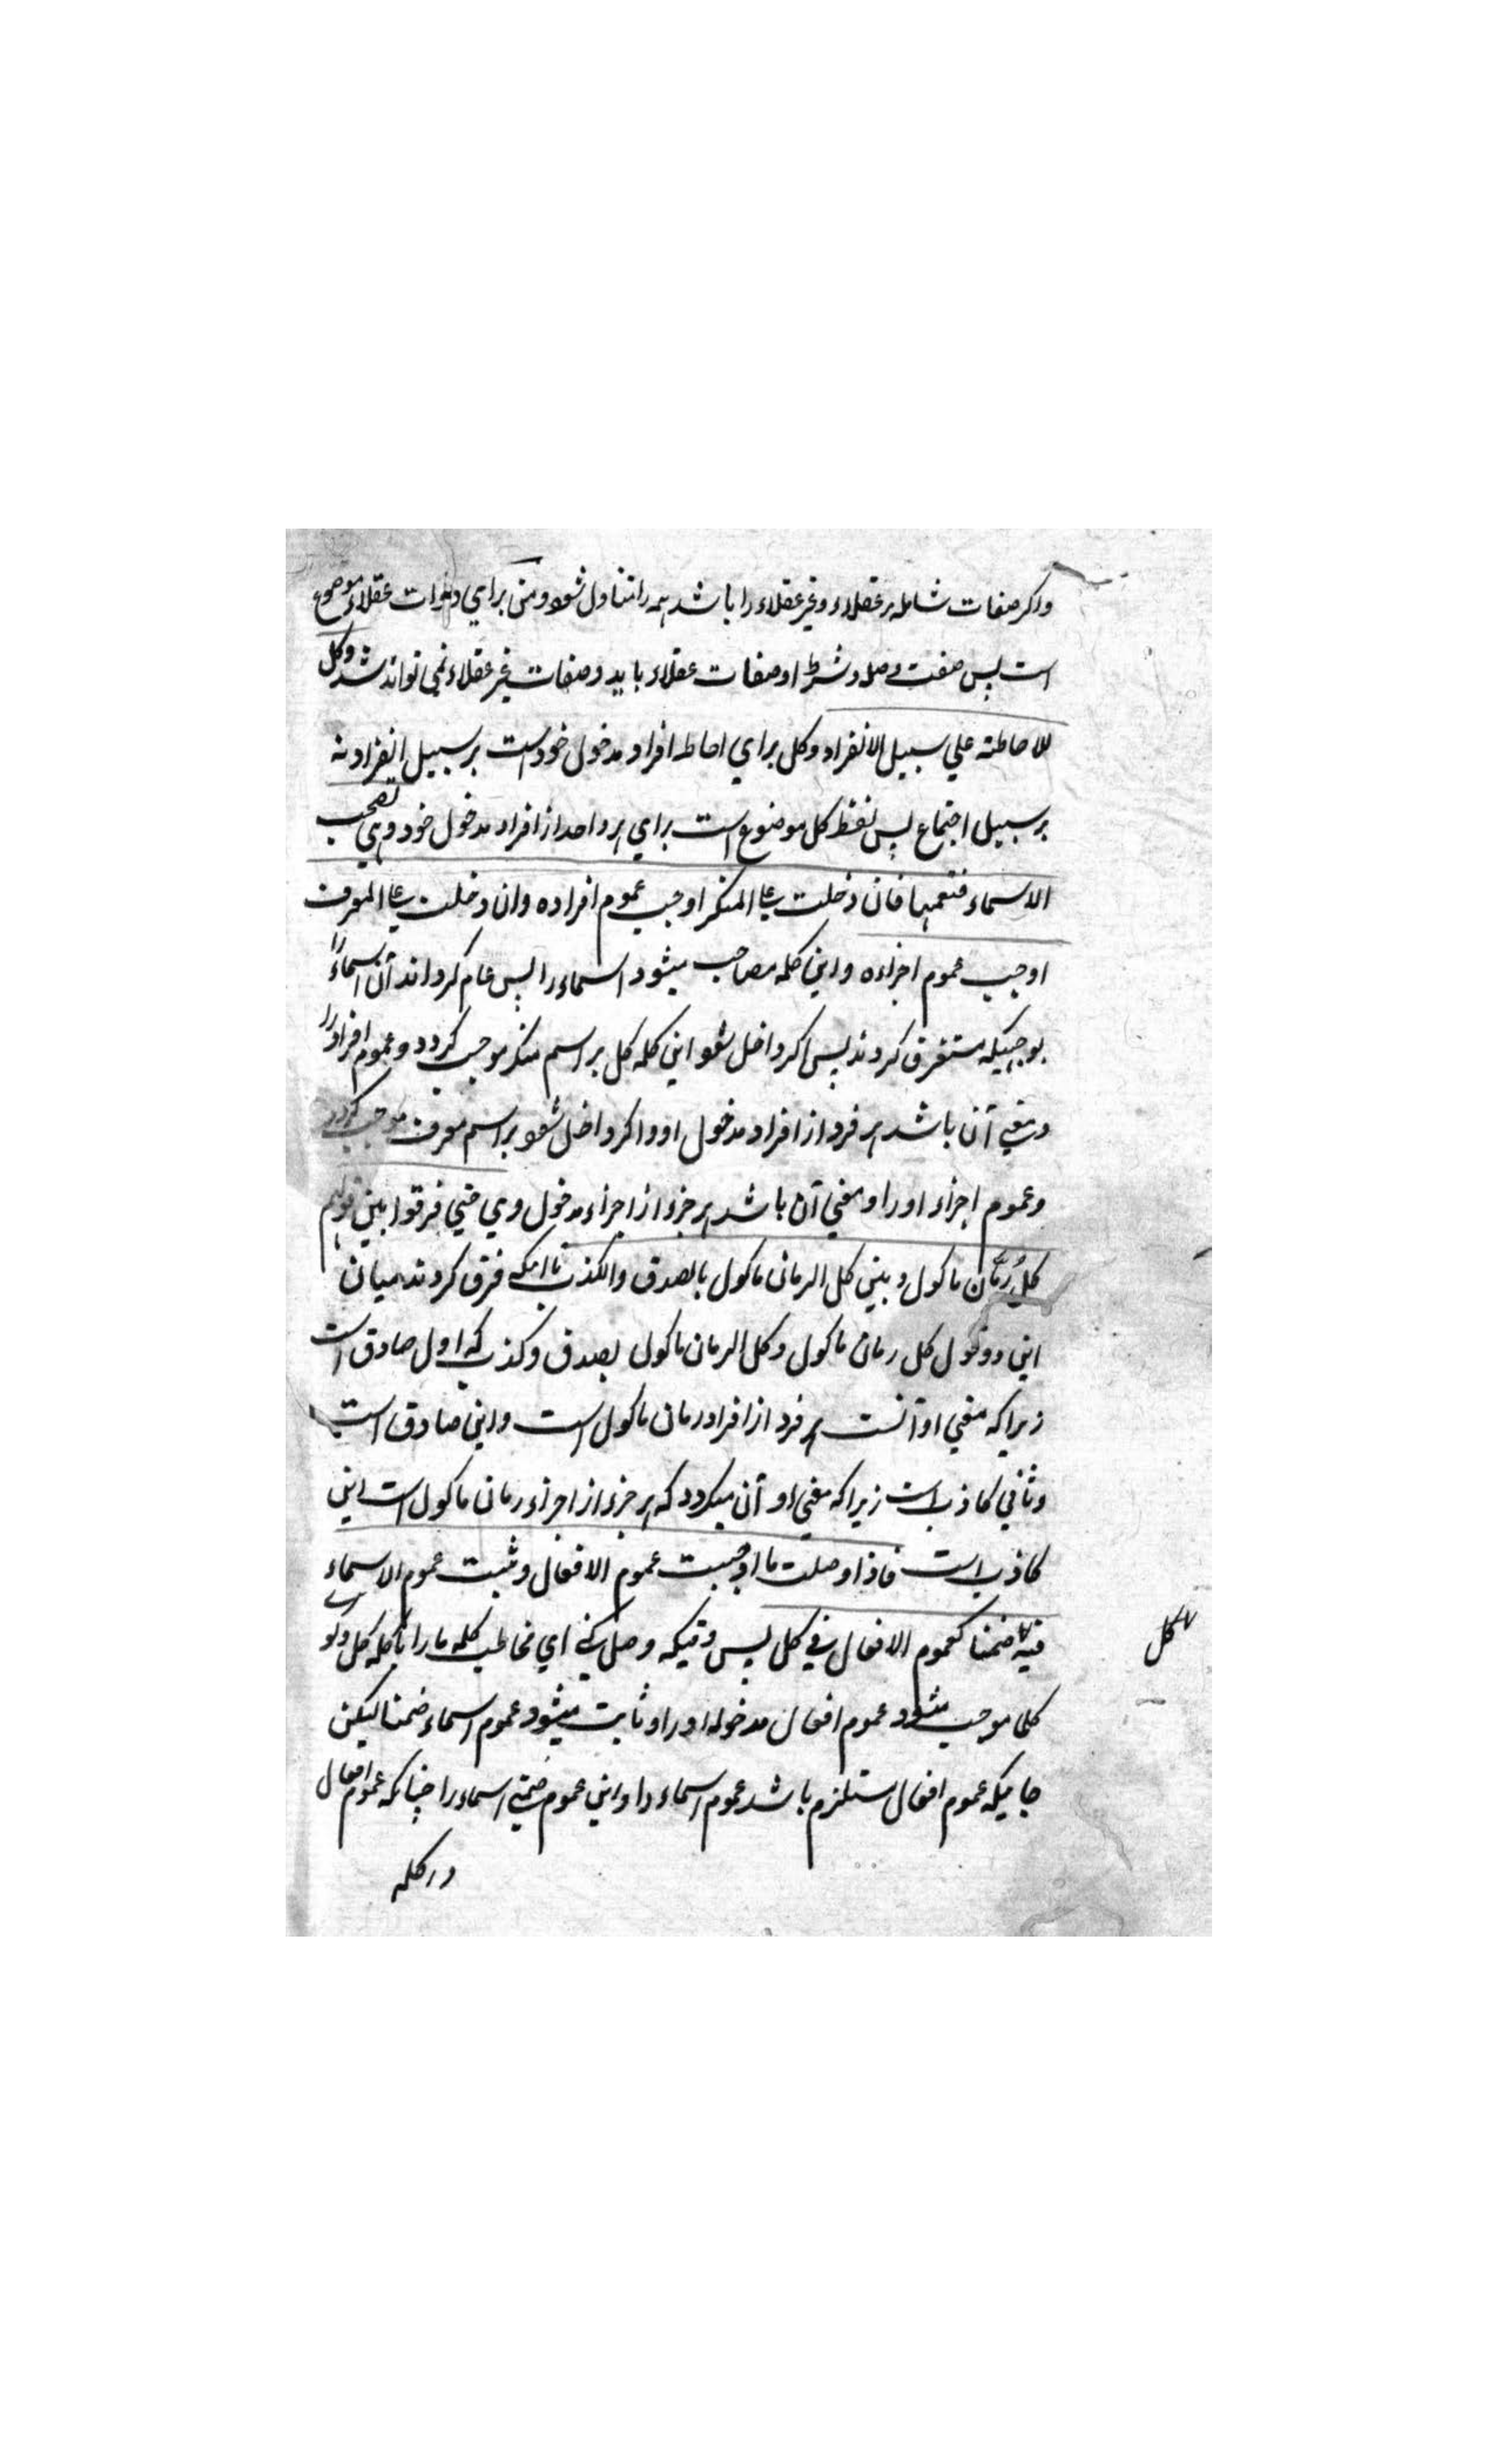 واکر صفات شامله مر عقلاء و غیر عقلاء را باشد همه را متناول شود و من برای ذوات عقلاء موضوع
است پس صفت و صله و شرط او صفات عقلاء باید و صفات غیر عقلاء نمی تواند شد و کل
للاحاطته علی سبیل الانفراد و کل برای احاطه افراد مدخول خود است بر سبیل انفراد نه
بر سبیل اجتماع پس لفظ کل موضوع است برای هر واحد از افراد مدخول خود وهی تصحب
الاسماء فتعمها فان دخلت علی المنکر اوجب عموم افراده وان دخلت علی المعرف
اوجب عموم اجزاءه و این کلمه مصاحب میشود اسماء را پس عام کرداند آن اسماء را
بوجهیکه مستغرق کردند پس اکر داخل شود این کلمه کل بر اسم منکر موجب کردد و عموم افراد را
و معنی آن باشد هر فرد از افراد مدخول او و اکر داخل شود بر اسم معرف موجب کردد
و عموم اجزاء او را و معنی آن باشد هر جزء از اجزاء مدخول وی حتی فرقوا بین قولهم
کل رُمّان ماکول و بین کل الرمان ماکول بالصدق والکذب تا انکه فرق کردند میان
این دو قول کل رمان ماکول و کل الرمان ماکول بصدق و کذب که اول صادق است
زیرا که معنی او آنست هر فرد از افراد رمان ماکول است و این صادق است
و ثانی کاذب است زیرا که معنی او آن میکردد که هر جزء از اجزاء رمان ماکول است این
کاذب است فاذا وصلت بما اوجبت عموم الافعال و ثبت عموم الاسماء
فیه ضمنا کعموم الافعال فی کل پس وقتیکه وصل کنی ای مخاطب کلمه ما را با کلمه کل و کو
کل
کلما موجب میشود عموم افعال مدخوله او را و ثابت میشود عموم اسماء ضمنا لیکن
جاییکه عموم افعال مستلزم باشد عموم اسماء را و این عموم ضمنی اسماء را چنانکه عموم افعال
در کلمه